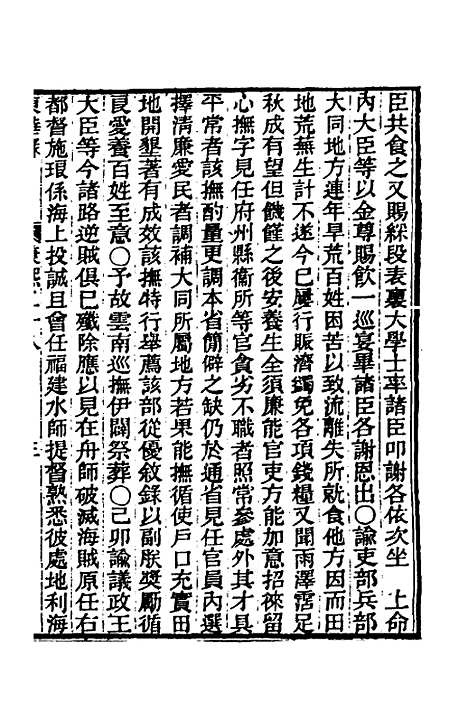 臣共食之又賜綵段表裏大學士率諸臣叩謝各依次坐　上命
內大臣等以金尊賜飲一巡宴畢諸臣各謝恩出〇諭吏部兵部
大同地方連年旱荒百姓困苦以致流離失所就食他方因而田
地荒蕪生計不遂今已屢行賑濟蠲免各項錢糧又聞雨澤霑足
秋成有望但饑饉之後安養生全須廉能官吏方能加意招徠留
心撫字見任府州縣衞所等官貪劣不職者照常參處外其才具
平常者該撫酌量更調本省簡僻之缺仍於通省見任官員內選
擇清廉愛民者調補大同所屬地方若果能撫循使戶口充實田
地開墾著有成效該撫特行舉薦該部從優敘錄以副朕獎勵循
良愛養百姓至意〇予故雲南巡撫伊闢祭葬〇己卯諭議政王
大臣等今諸路逆賊俱已殲除應以見在舟師破滅海賊原任右
都督施琅係海上投誠且曾任福建水師提督熟悉彼處地利海
東華錄　康熙二十八　三